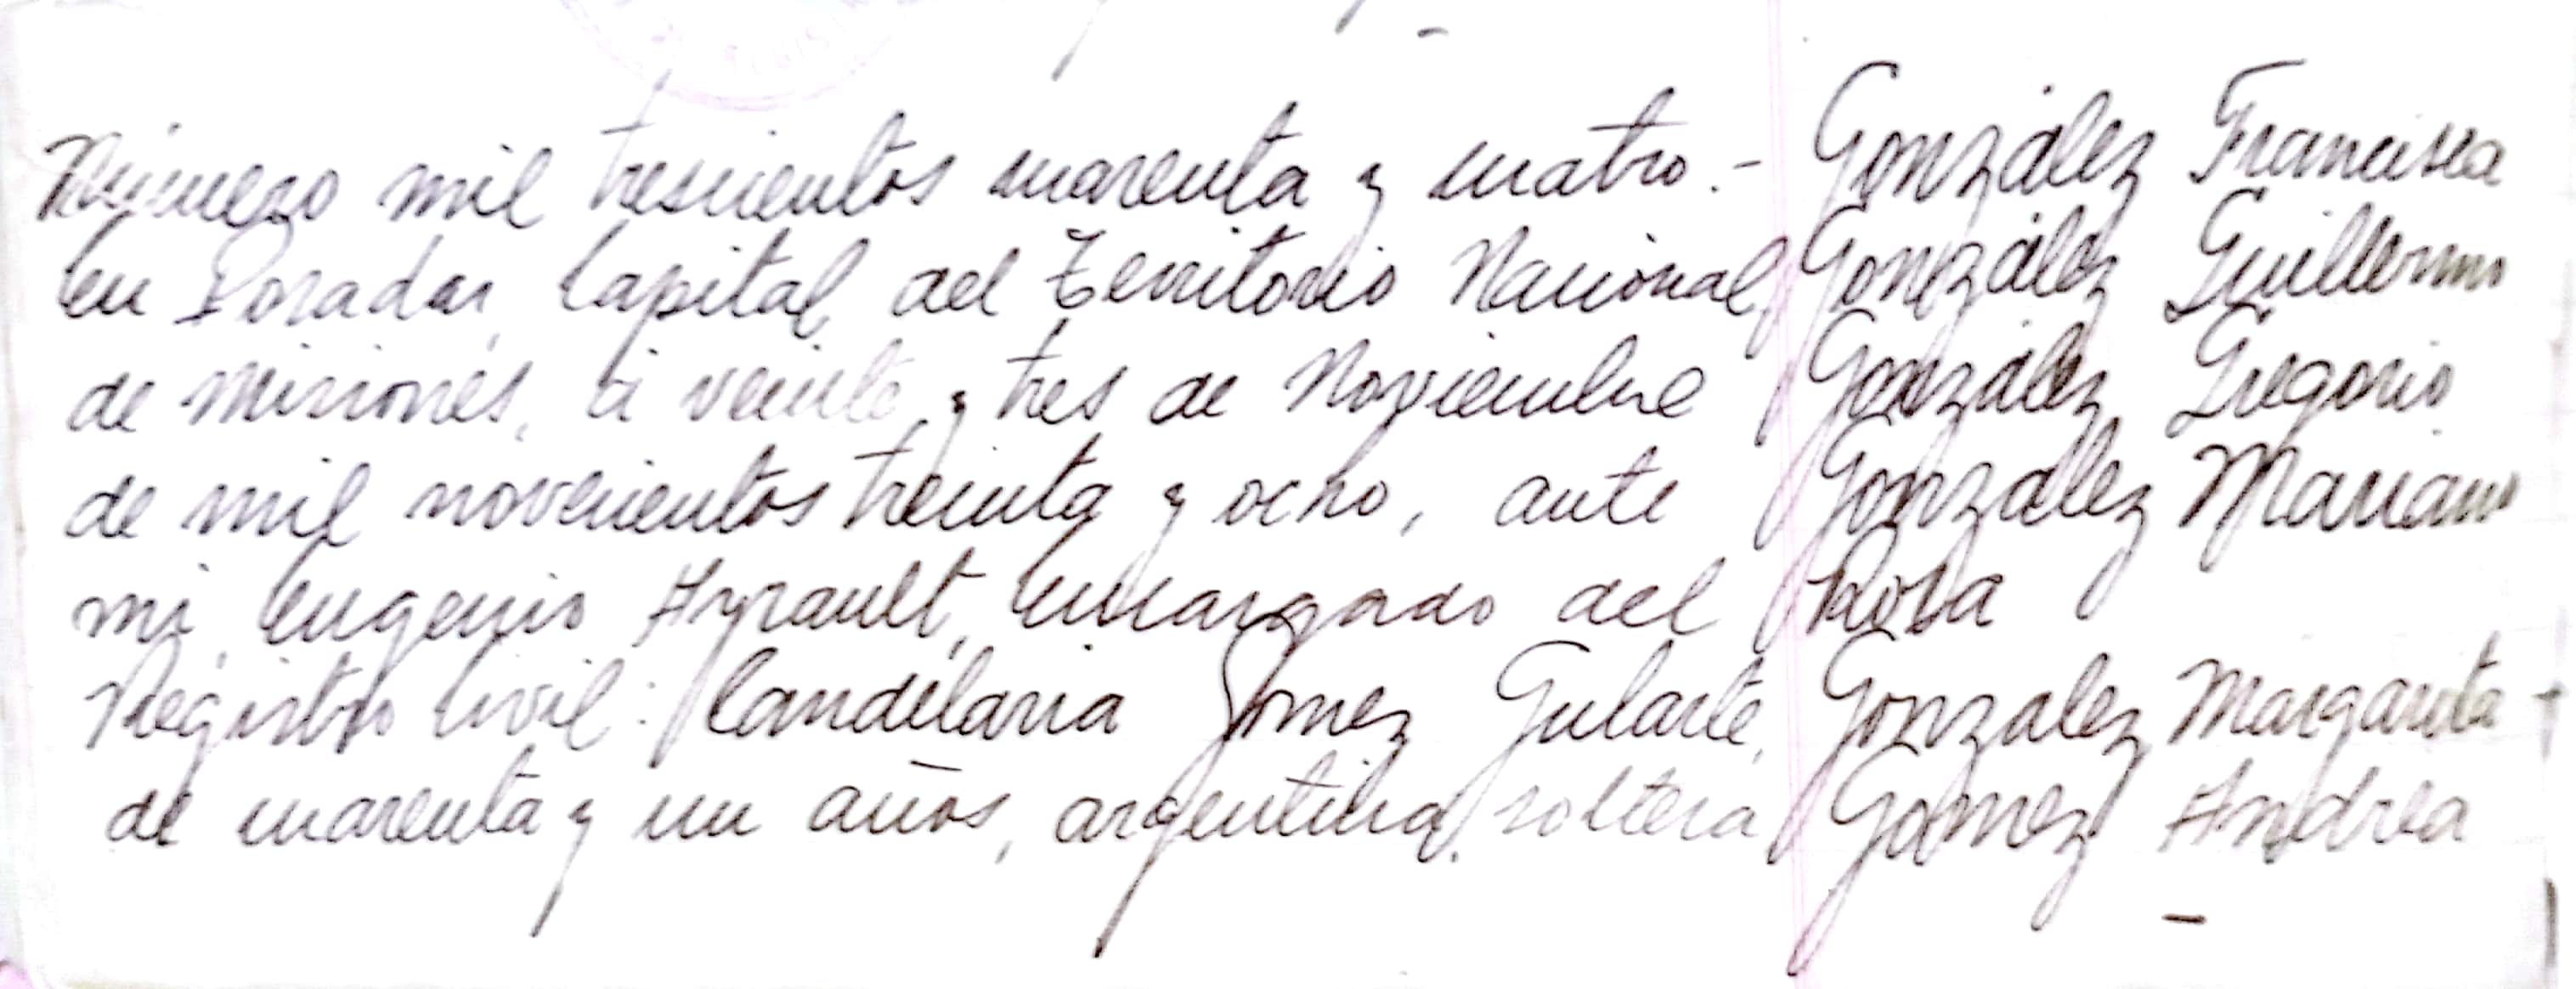 Número mil trescientos cuarenta y cuatro.-
En Posadas, Capital del Territorio Nacional,
de Misiones, á veinte y tres de Noviembre
de mil novecientos treinta y ocho, ante
mi, Eugenio Ayrault, Encargado del
Registro Civil: Candelaria Gomez Gularte,
de cuarenta y un años, argentina, soltera
González Francisca
González Guillermo
González Gregorio
González Mariano
Rosa
Gonzalez Margarita -
Gomez Andrea
-